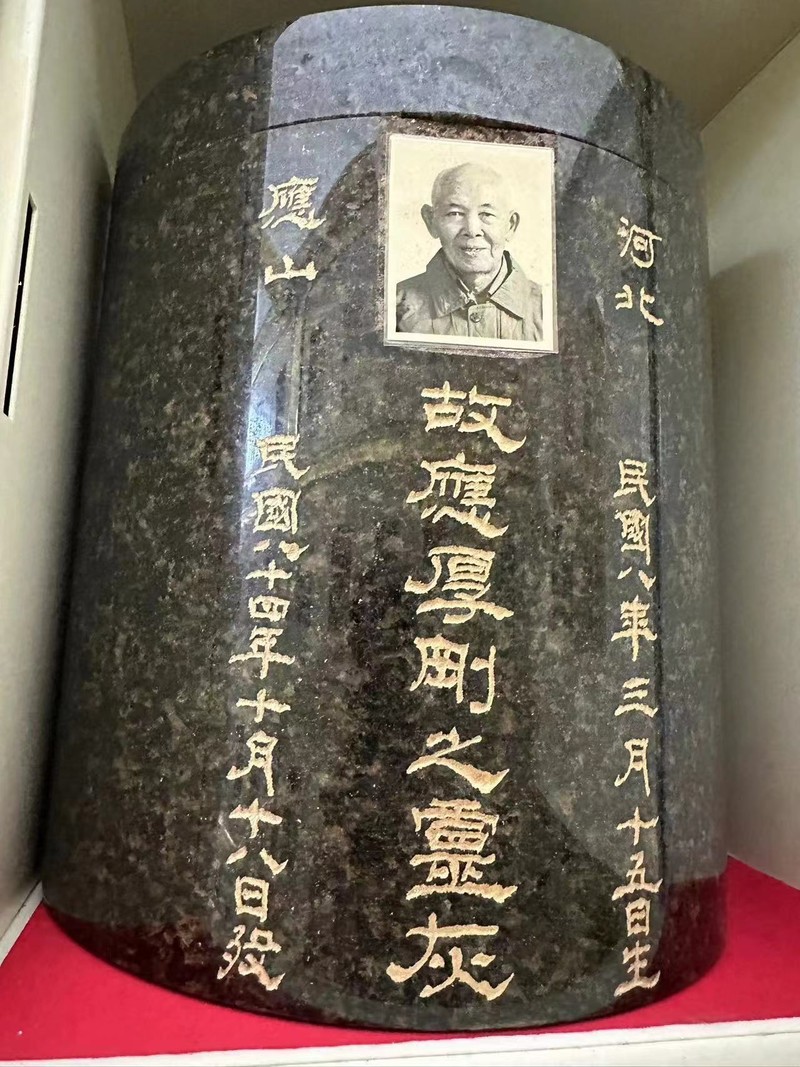 河北
民國八年三月十五日生
故應厚剛之靈灰
應山
民國八十四年十月十八日歿